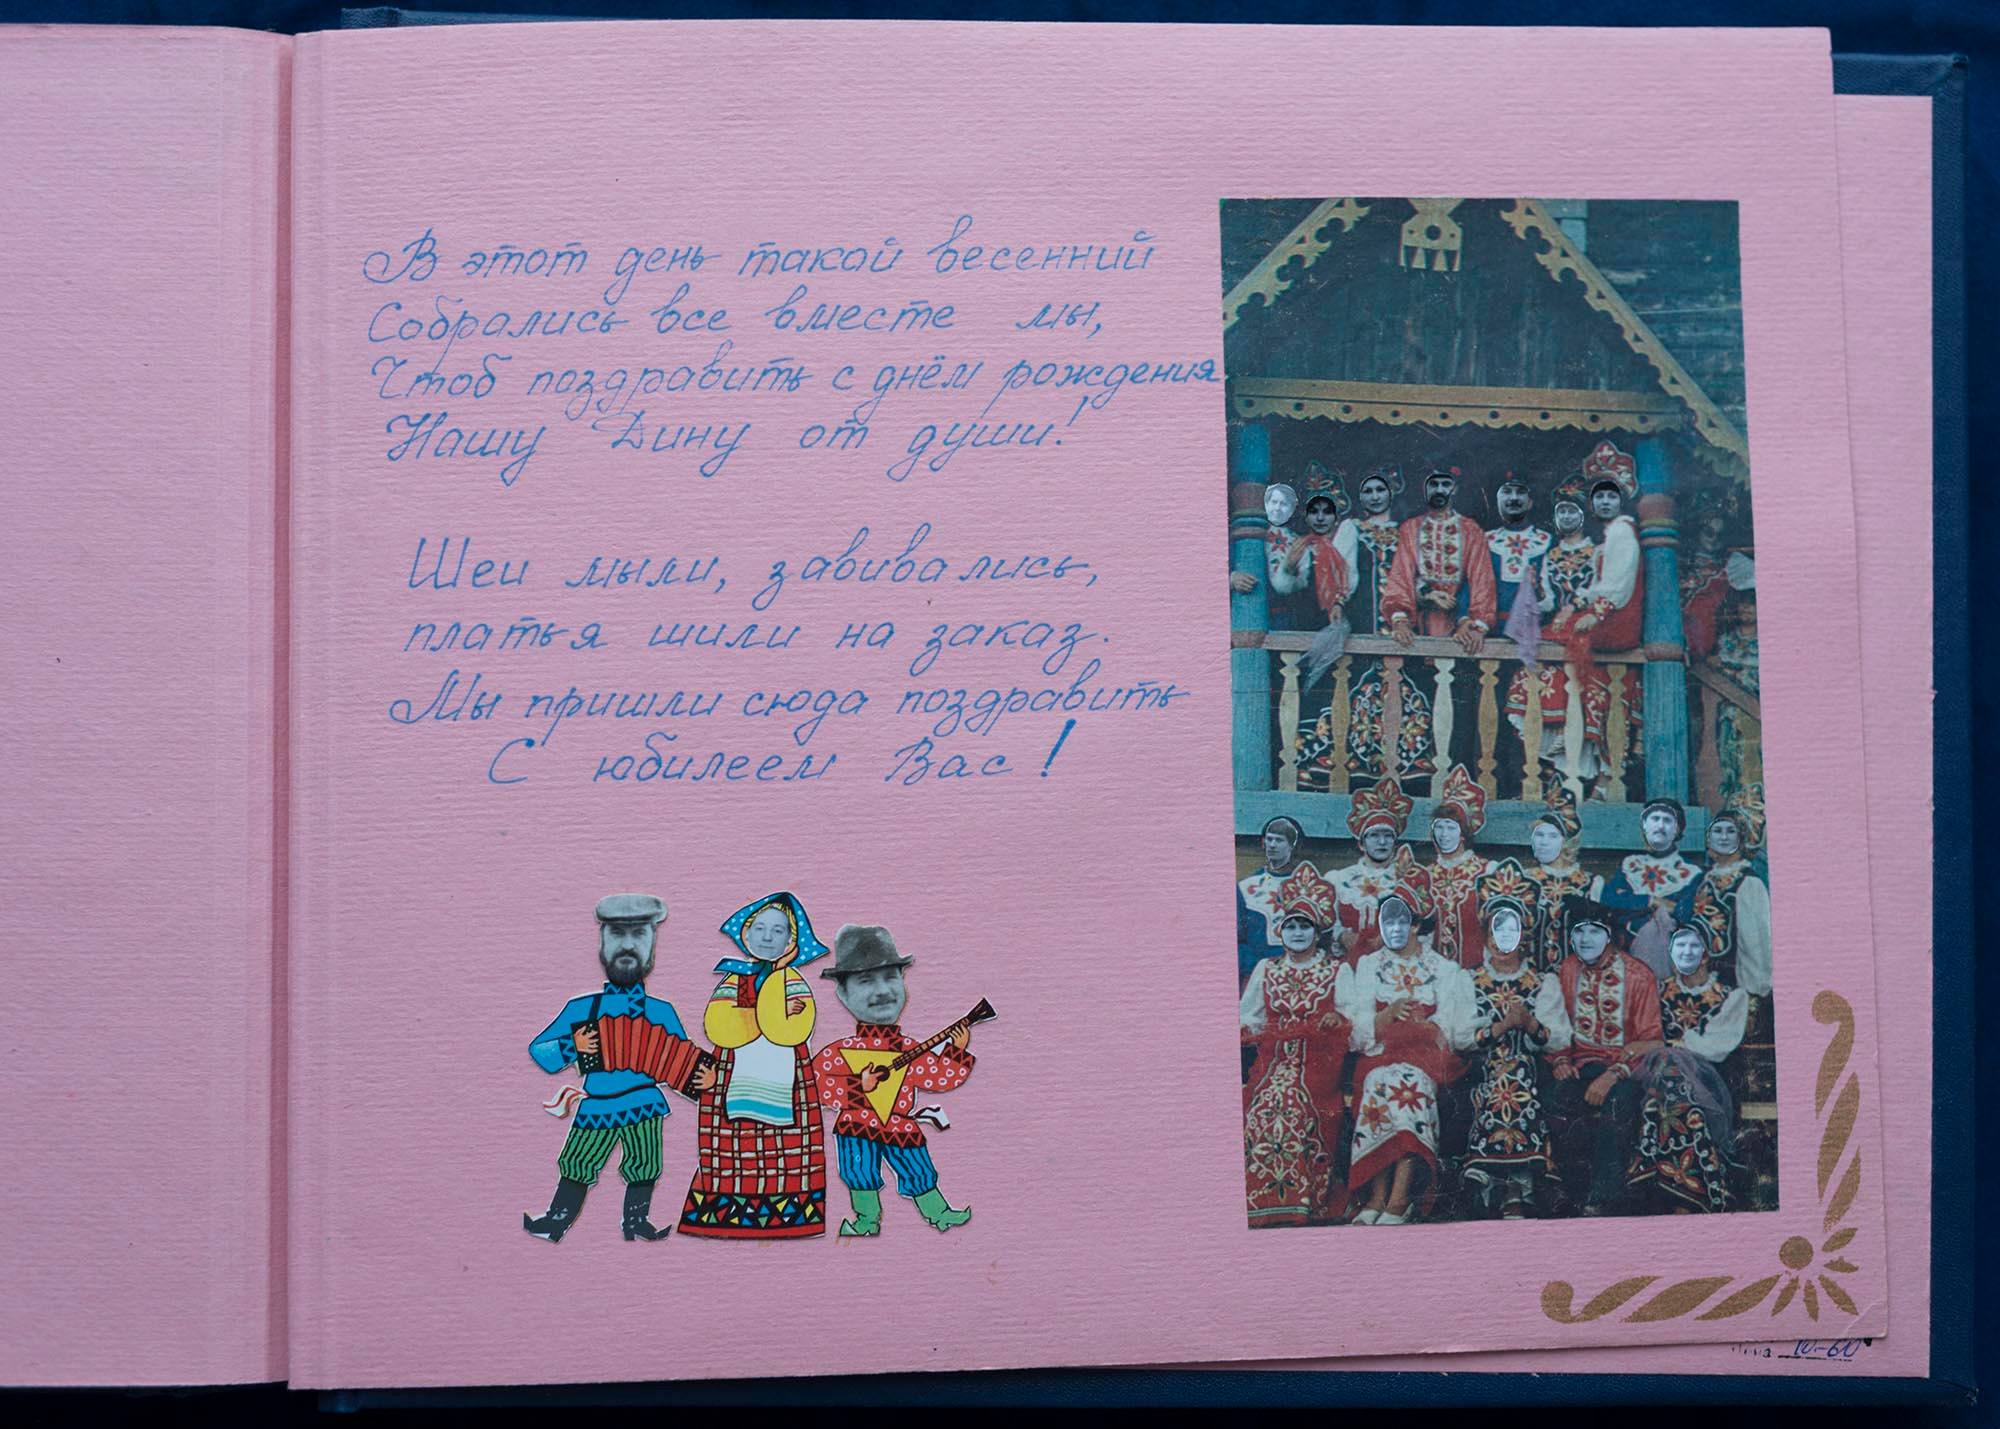 В этот день такой весенний
Собрались все вместе мы,
Чтоб поздравить с днём рождения
Нашу Дину от души!
Шеи мыли, завивались,
платья шили на заказ.
Мы пришли сюда поздравить
С юбилеем Вас!
10-60